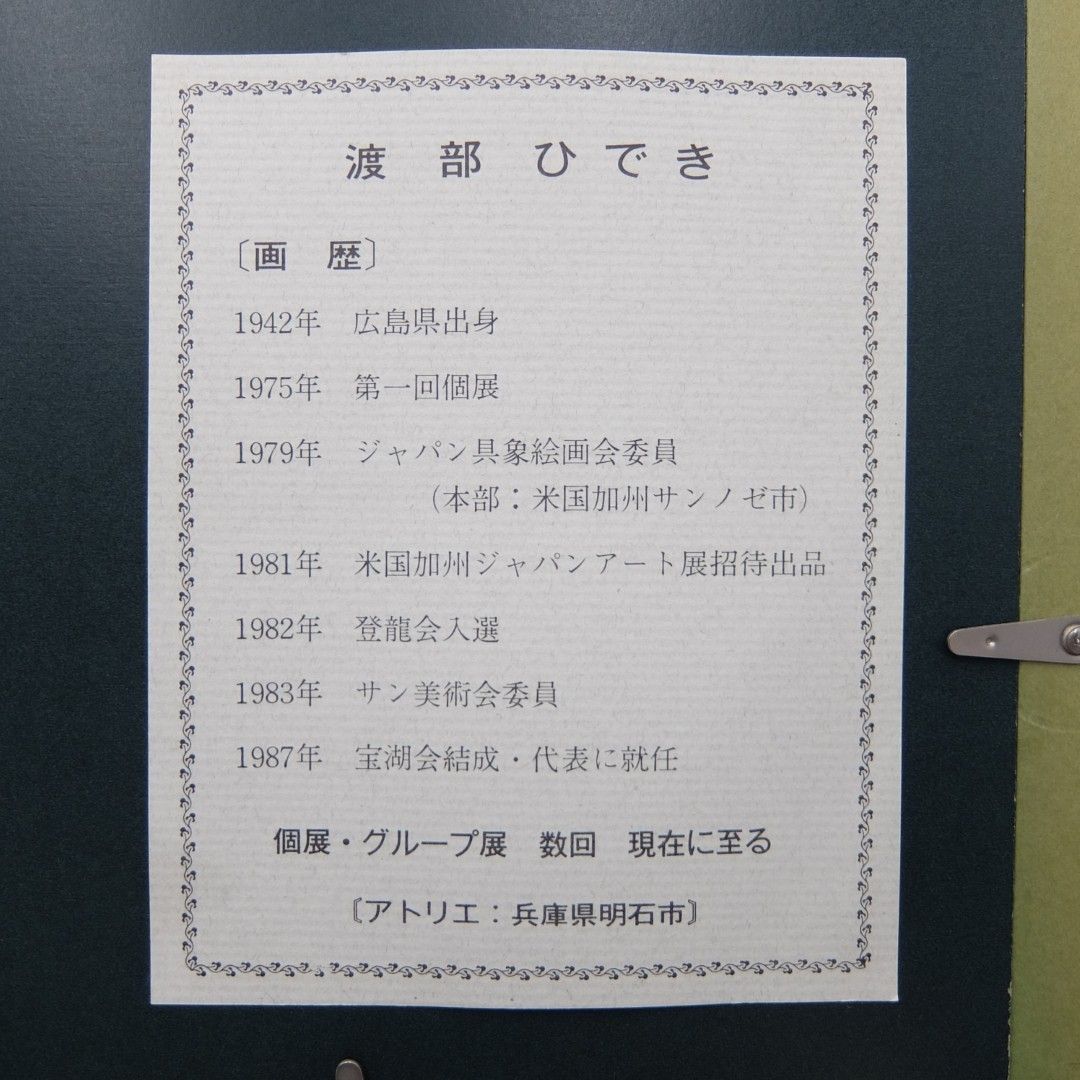 渡部ひでき
〔画 歴〕
1942年 広島県出身
1975年 第一回個展
1979年 ジャパン具象絵画会委員
（本部：米国加州サンノゼ市）
1981年 米国加州ジャパンアート展招待出品
1982年 登龍会入選
1983年 サン美術会委員
1987年 宝湖会結成・代表に就任
個展・グループ展 数回 現在に至る
〔アトリエ：兵庫県明石市〕